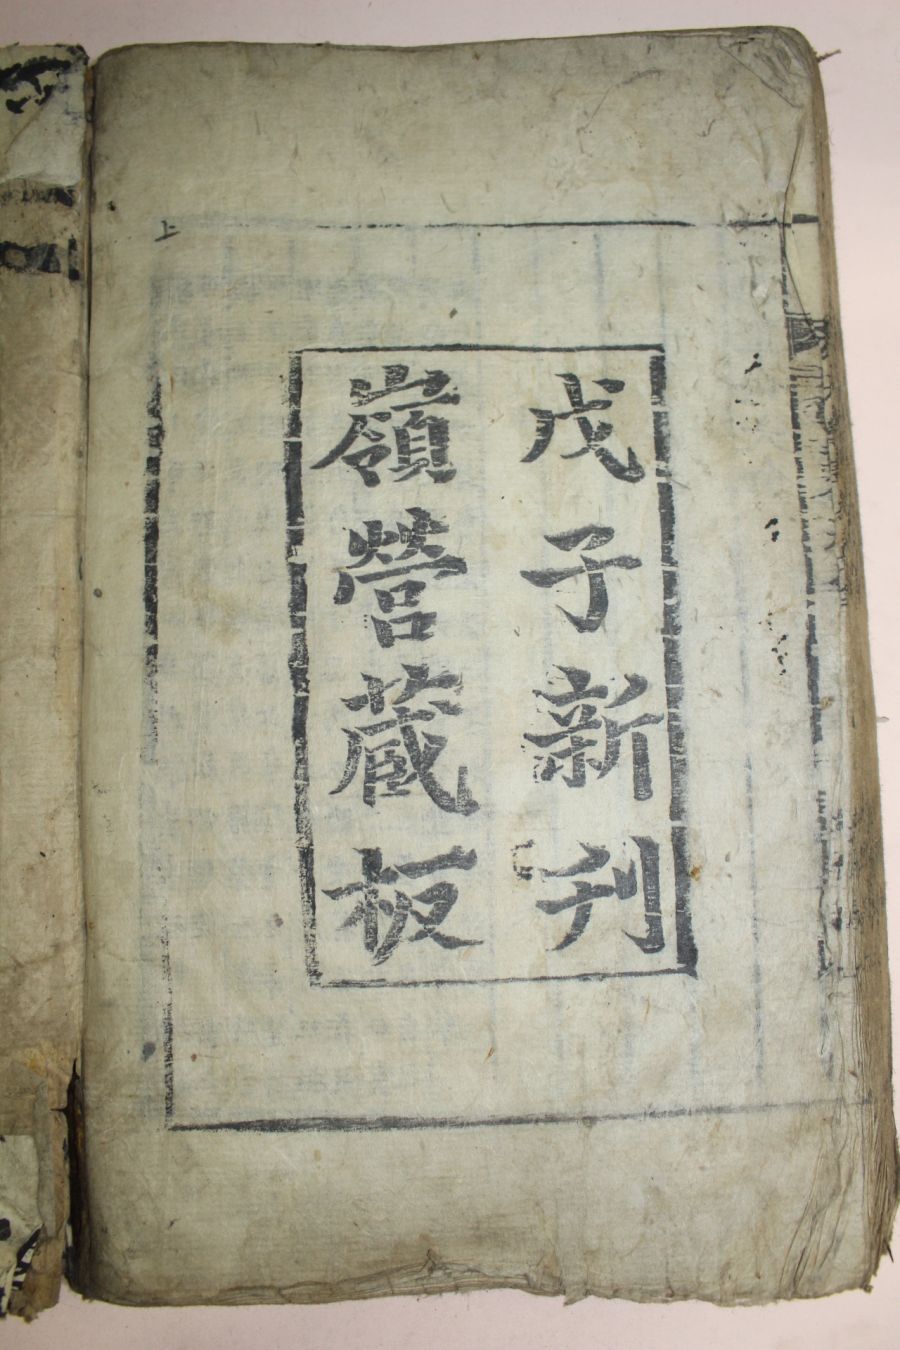 戊子新刊
嶺營藏板
上